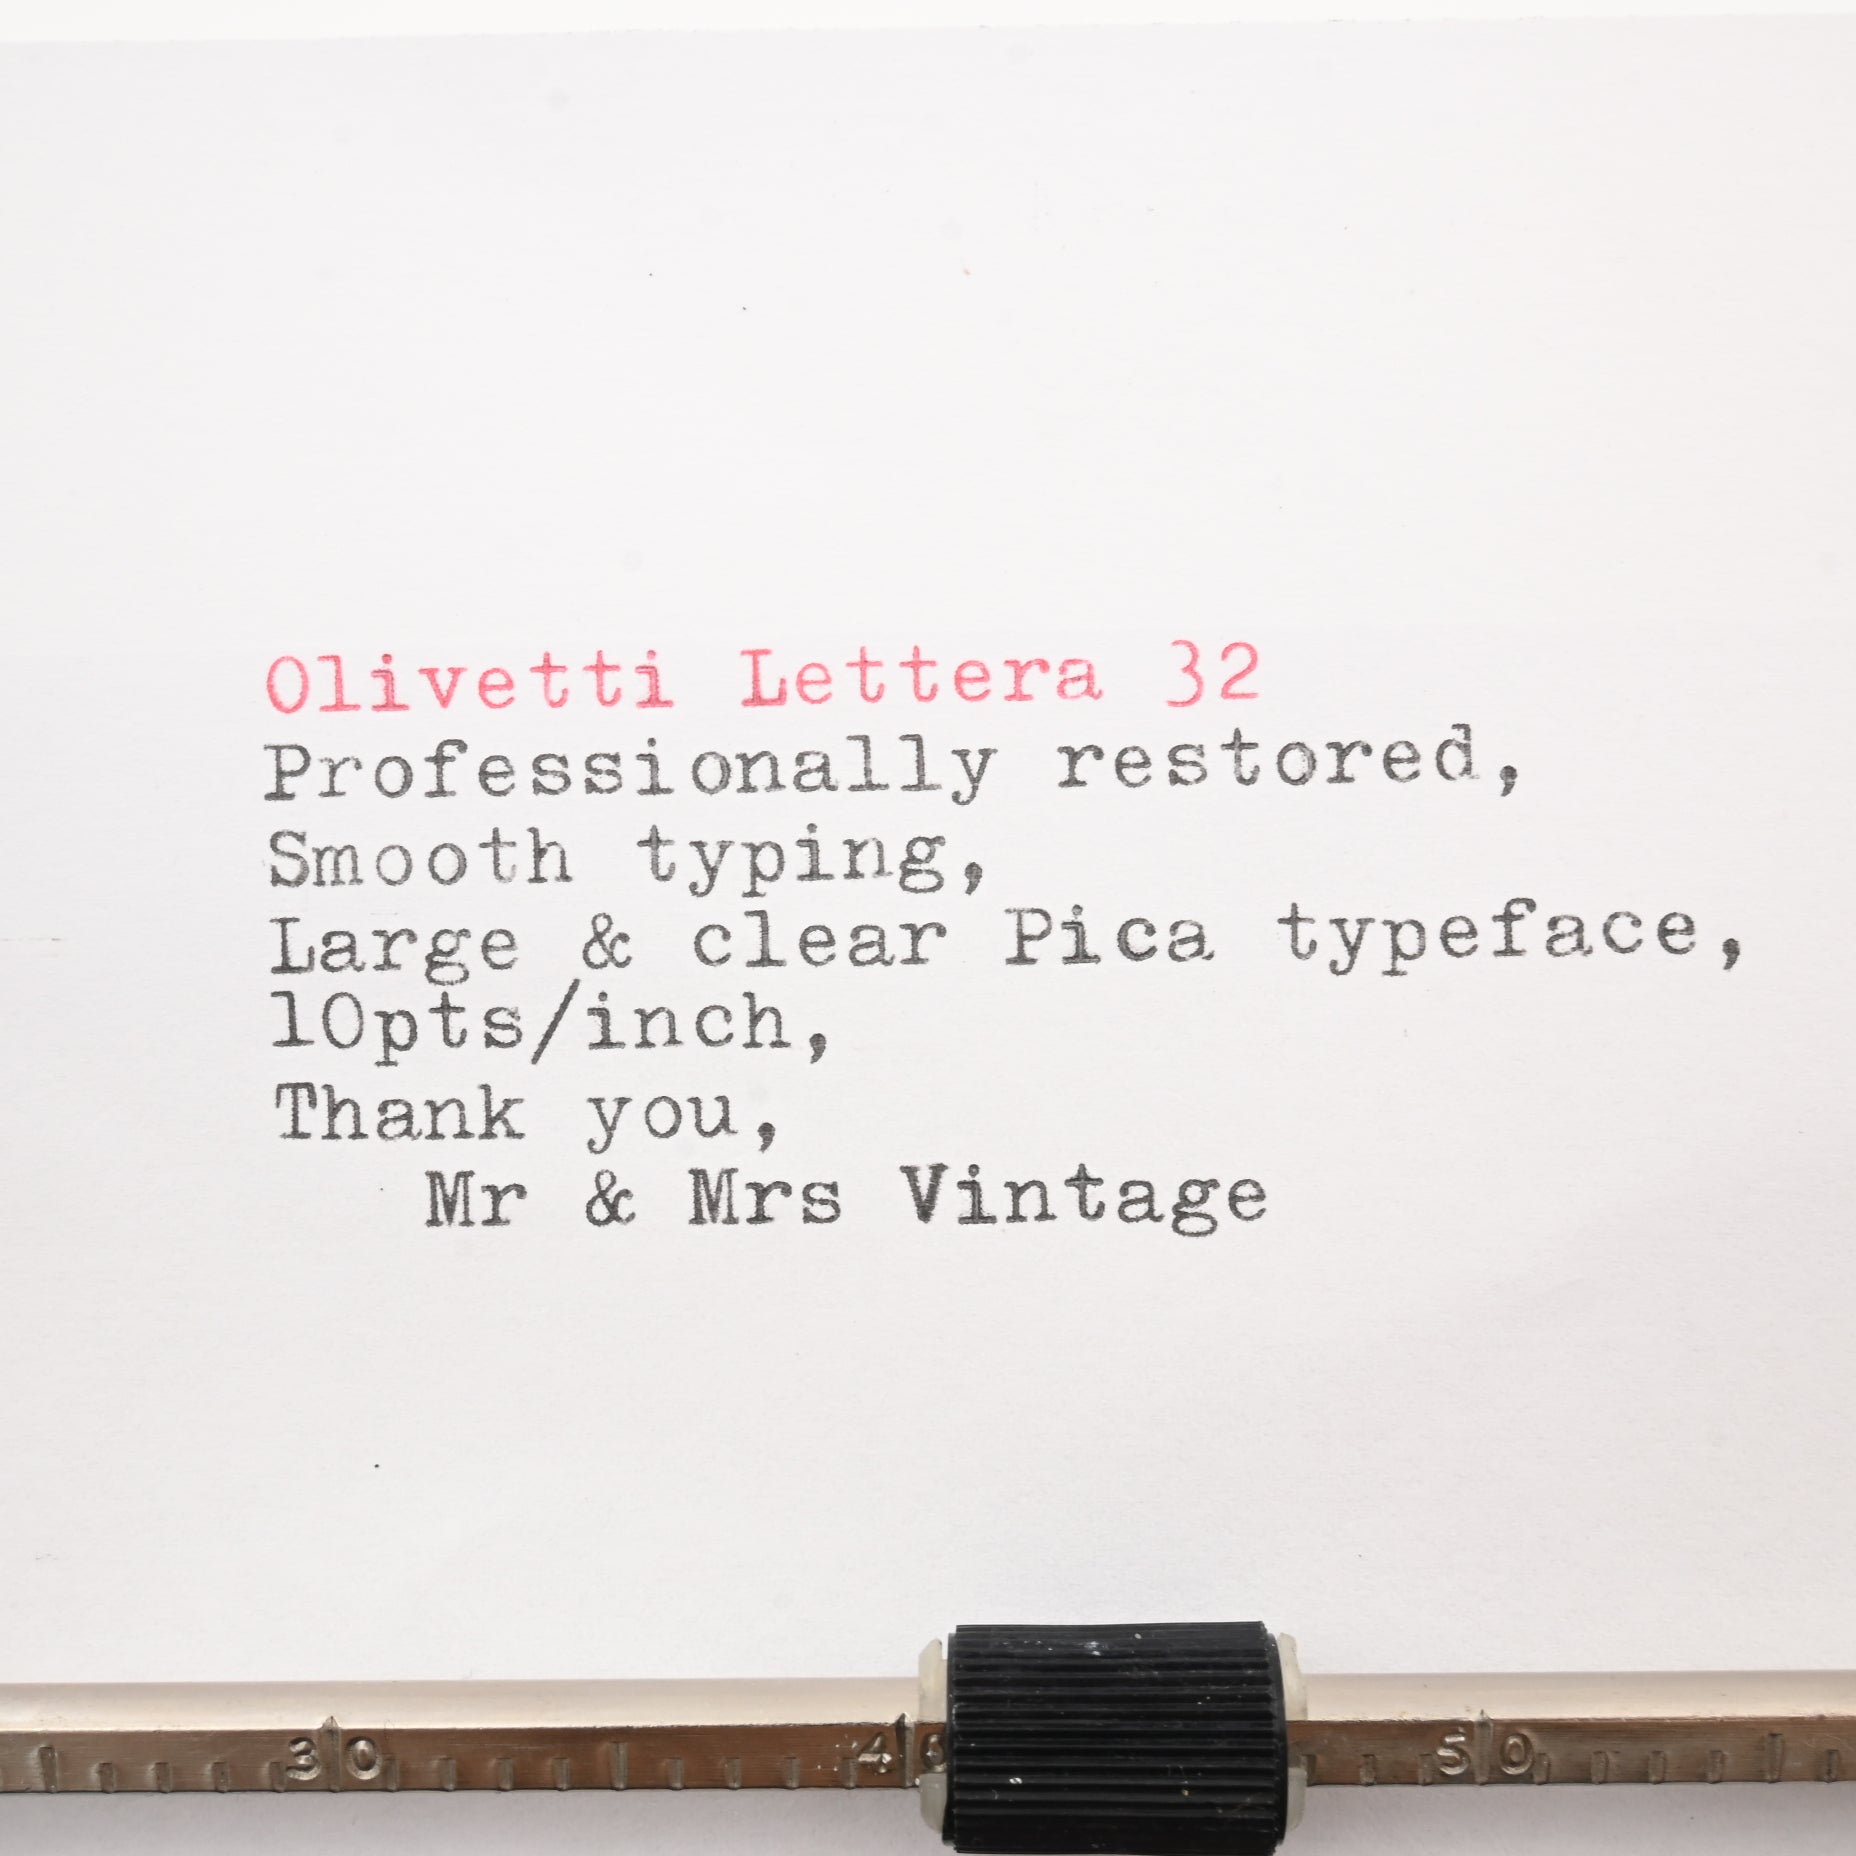 Olivetti Lettera 32
Professionally restored,
Smooth typing,
Large & clear Pica typeface,
10pts/inch,
Thank you,
Mr & Mrs Vintage
30 40 50